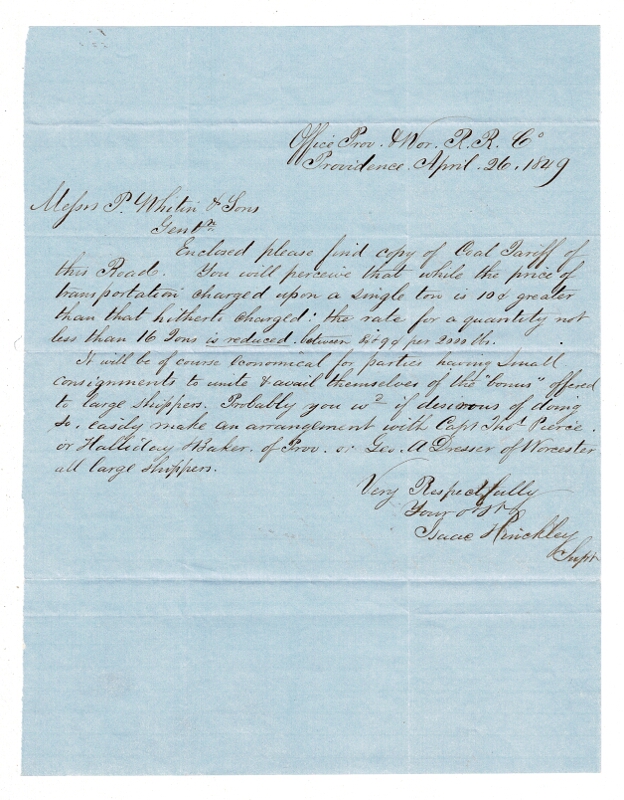 Office Prov. & Wor. R. R. Co
Providence, April. 26. 1849
Messrs P. Whitin & Sons
Gentn
Enclosed please find copy of Coal Tariff of
this Road. You will perceive that while the price of
transportation charged upon a single ton is 10¢ greater
than that hitherto charged: the rate for a quantity not
less than 16 Tons is reduced. between 8 & 9¢ per 2000 lbs.
It will be of course economical for parties having small
consignments to unite & avail themselves of the "bonus" offered
to large shippers. Probably you wd if desirous of doing
so, easily make an arrangement with Capt Thos Pierce.
or Halliday & Baker. of Prov. or Geo. A Dresser of Worcester
all large shippers.
Very Respectfully
Your obt S
Isaac Hinckley
Supt